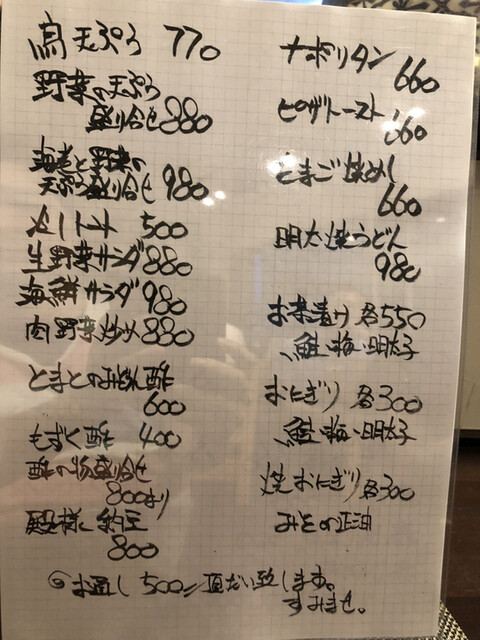 天ぷら 770
野菜の天ぷら
盛り合せ 880
海老と野菜の
天ぷら盛り合せ 980
トマト 500
生野菜サラダ 880
海鮮サラダ 980
肉野菜炒め 880
とまとのみぞれ酢
600
もずく酢 400
酢の物盛り合せ
800より
殿様納豆
800
ナポリタン
660
ピザトースト
660
たまご焼めし
660
明太焼うどん
980
お茶漬け 各550
鮭・梅・明太子
おにぎり 各300
鮭・梅・明太子
焼おにぎり 各300
みその正油
◎お通し 500- 頂だい致します。
すみませ。